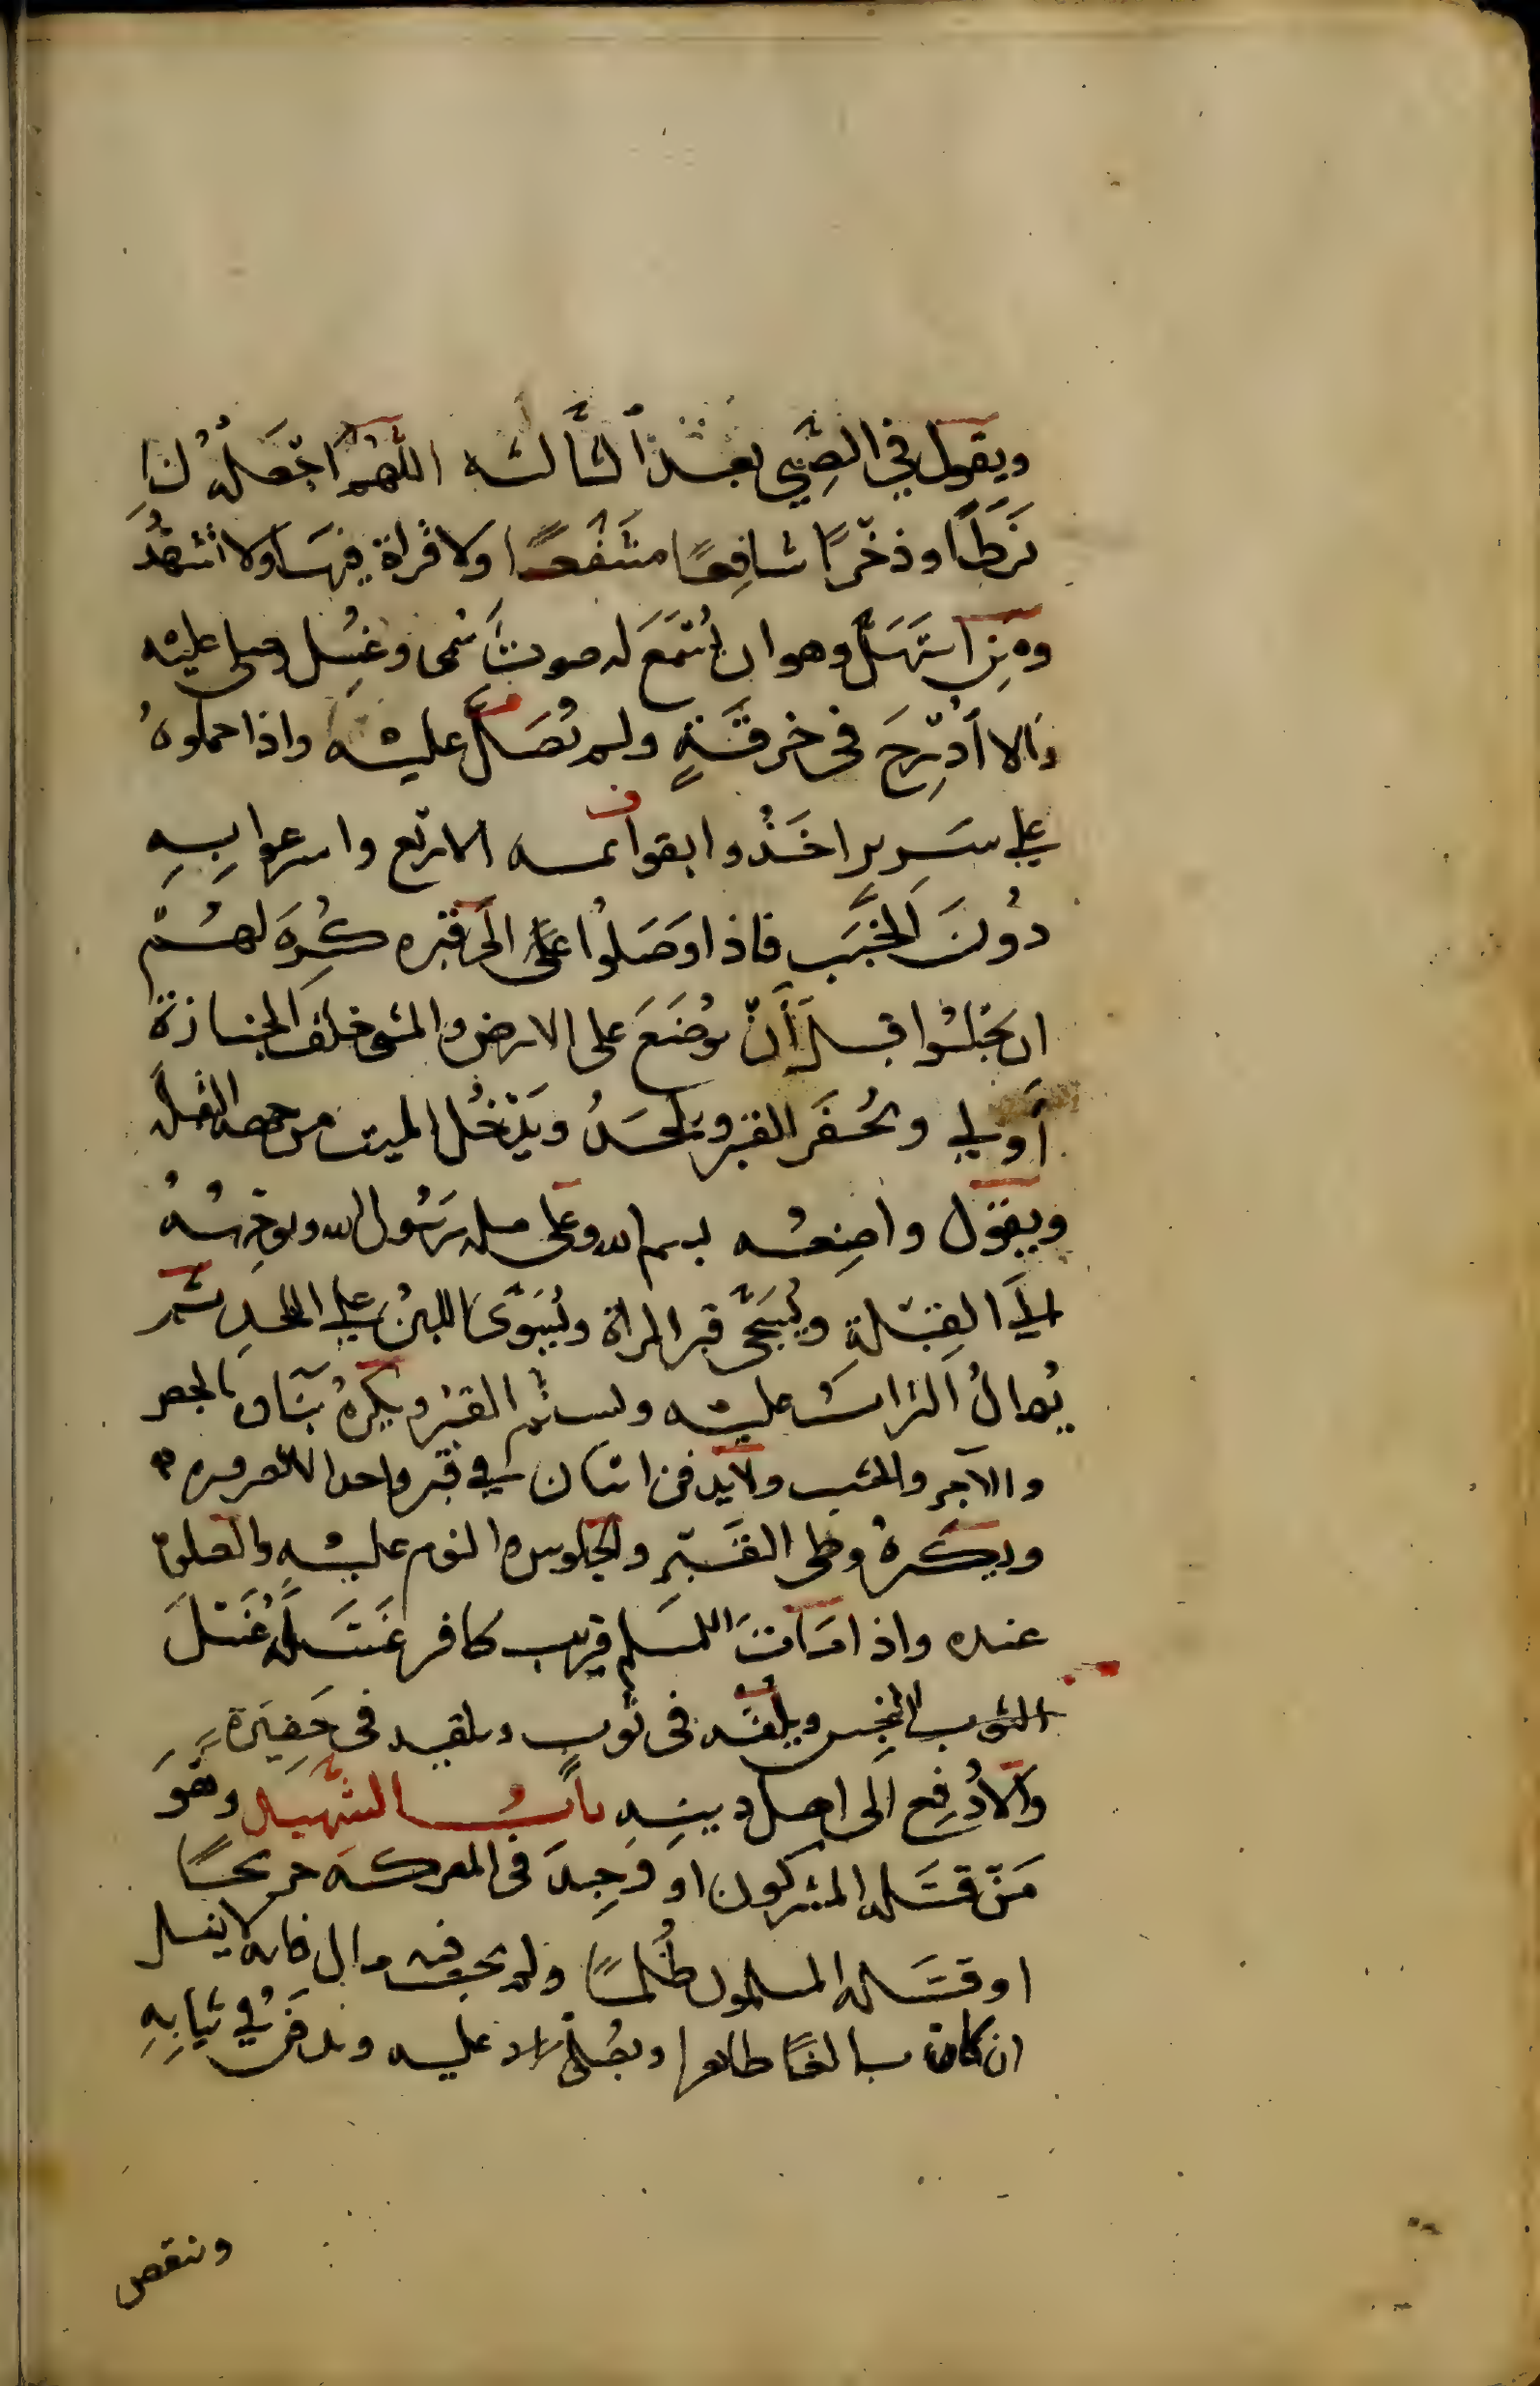 ويقول في الصبي بعد الثالثة اللهم اجعله لنا
فرطا وذخرا شافعا مشفعا ولا قراة فيها ولا تشهد
ومن استهل وهو ان يسمع له صوت سمى وغسل وصلى عليه
والا أدرج فى خرقة ولم يصل عليه واذا حملوه
على سرير اخذوا بقوائمه الاربع واسرعوا به
دون الخبب فاذا وصلوا الى قبره كره لهم
ان يجلسوا قبل أن يوضع على الارض والمشي خلف الجنازة
أولى ويحفر القبر ويلحد ويدخل الميت من جهة القبلة
ويقول واضعه بسم الله وعلى ملة رسول الله ويوجهه
الى القبلة ويسجى قبر المراة ويسوى اللبن على اللحد ثم
يهال التراب عليه ويسنم القبر ويكره بناؤه بالجص
والآجر والخشب ولا يدفن اثنان في قبر واحد الا لضرورة
ويكره وطى القبر والجلوس والنوم عليه والصلاة
عنده واذا مات للمسلم قريب كافر غسله غسل
الثوب النجس ويلفه فى ثوب ويلقيه فى حفيرة
والا دفع الى اهل دينه باب الشهيد وهو
من قتله المشركون او وجد فى المعركة جريحا
او قتله المسلمون ظلما ولم يجب فيه مال فانه لا يغسل
ان كان بالغا طاهرا ويصلى عليه ويدفن في ثيابه
وينقص